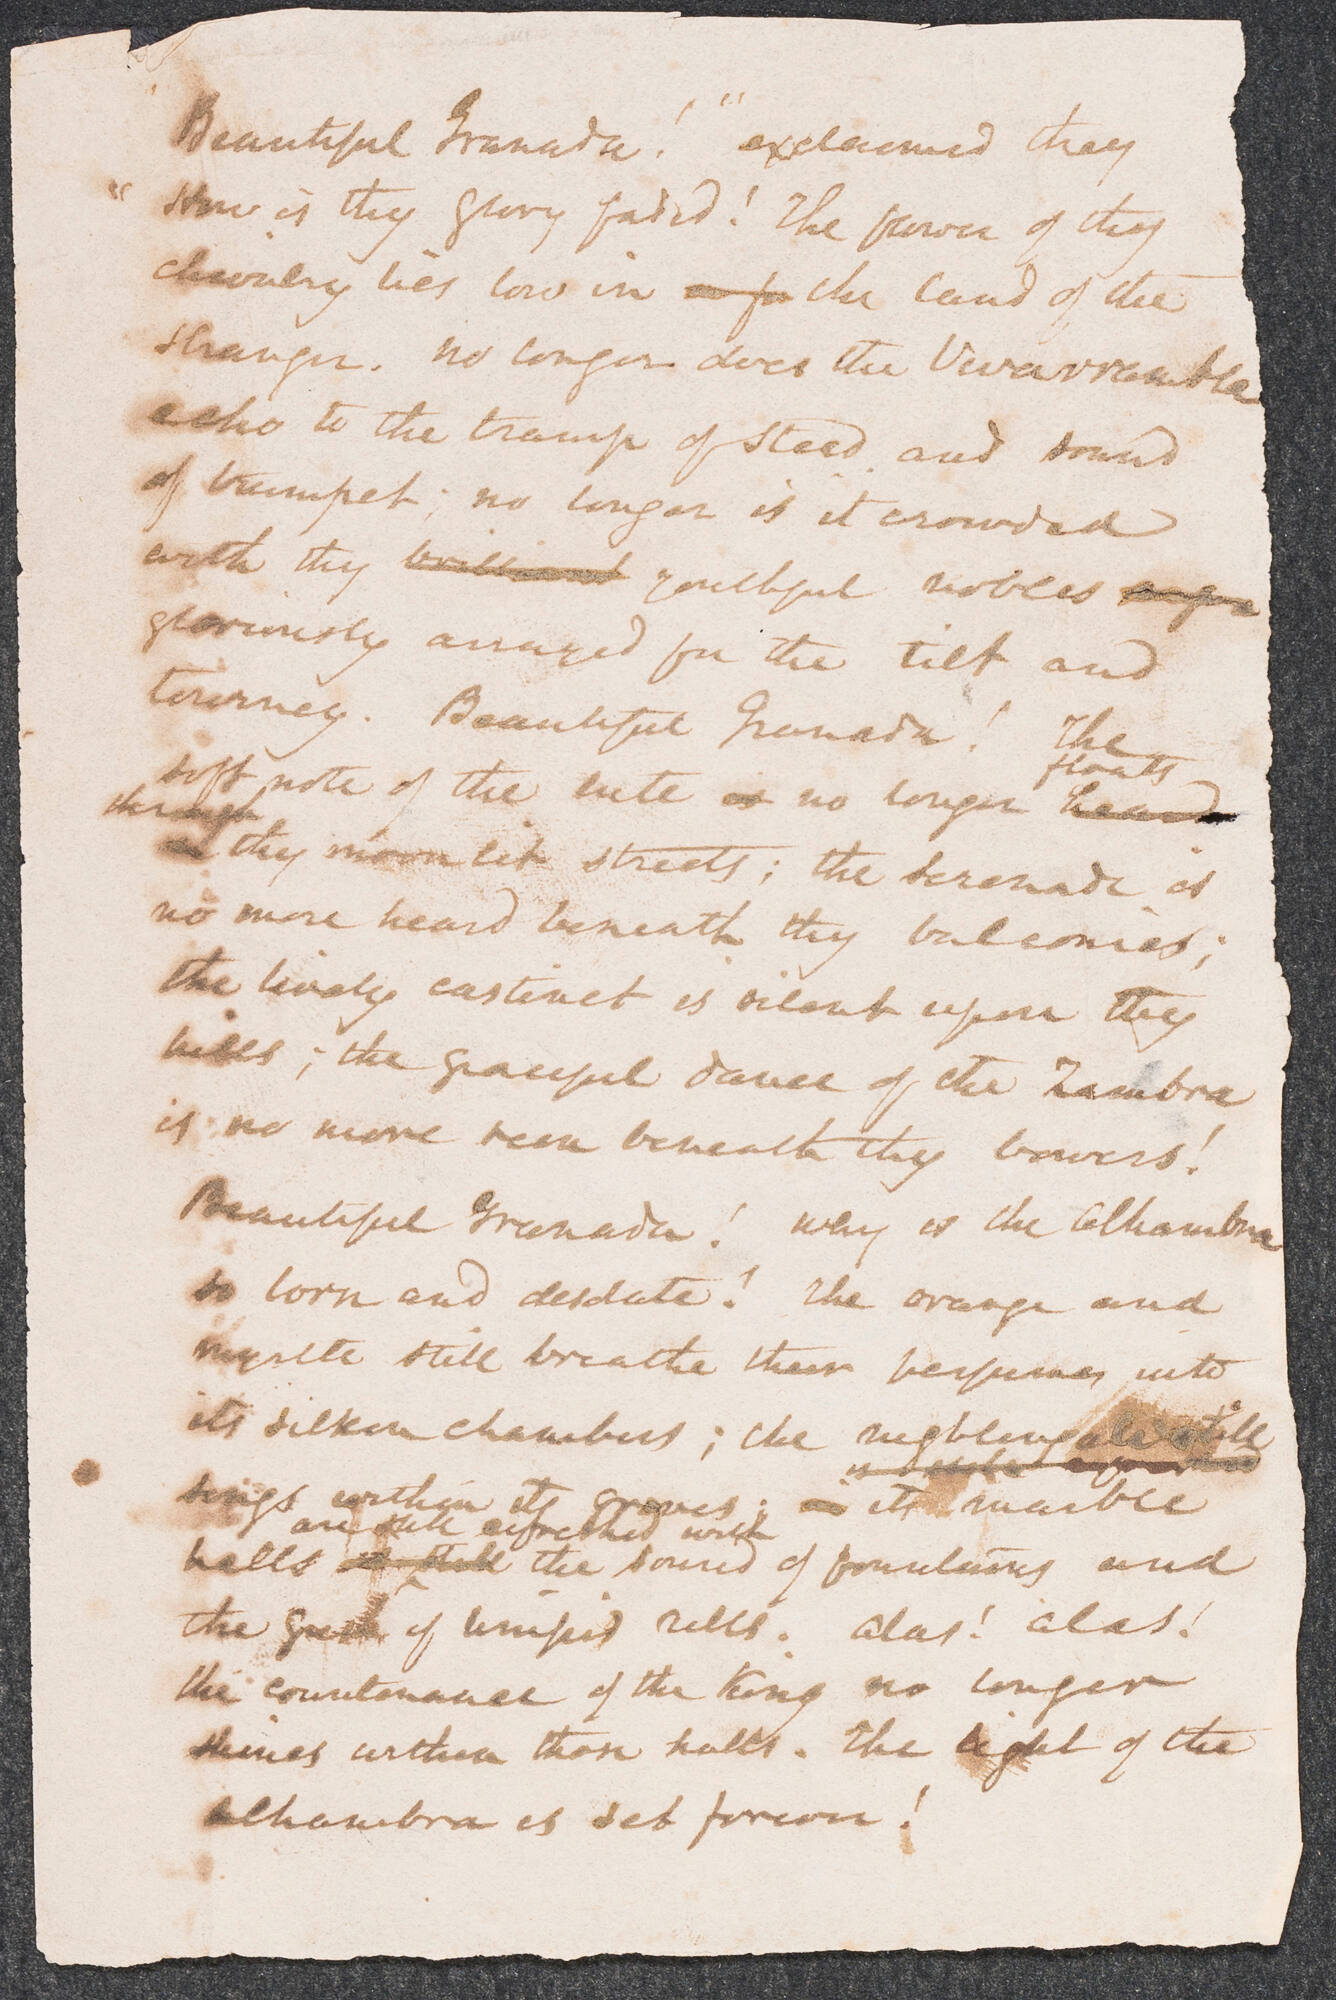 "Beautiful Granada!" exclaimed they
"how is thy glory faded! The flower of thy
chivalry lies low in the land of the
stranger. no longer does the Vivarrambla
echo to the tramp of steed and sound
of trumpet; no longer is it crowded
with thy brilliant youthful nobles
gloriously arrayed for the tilt and
tourney. Beautiful Granada! The
floats
soft note of the lute is no longer heard
through
in thy moon lit streets; the serenade is
no more heard beneath thy balconies;
the lively castinet is silent upon thy
hills; the graceful dance of the Zambra
is no more seen beneath thy bowers!
Beautiful Granada! why is the Alhambra
so lorn and desolate! The orange and
myrtle still breathe their perfumes into
its silken chambers; the nightingale still
sings within its groves; its marble
are still refreshed with
halls is still the sound of fountains and
the gush of limpid rills. Alas! alas!
the countenance of the King no longer
shines within those halls. The light of the
Alhambra is set forever!